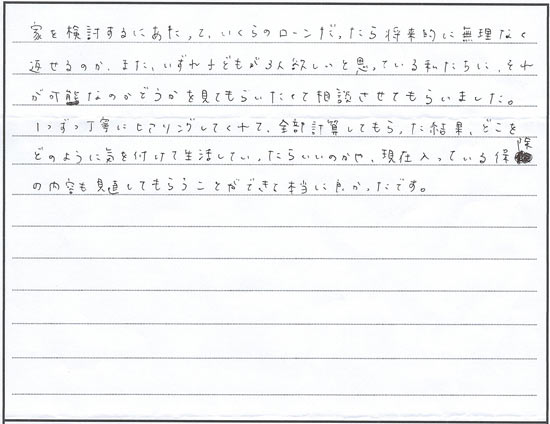 家を検討するにあたって、いくらのローンだったら将来的に無理なく
返せるのか、また、いずれ子どもが3人欲しいと思っている私たちに、それ
が可能なのかどうかを見てもらいたくて相談させてもらいました。
1つずつ丁寧にヒアリングしてくれて、全部計算してもらった結果、どこを
どのように気を付けて生活していったらいいのかや、現在入っている保険
の内容も見直してもらうことができて本当に良かったです。